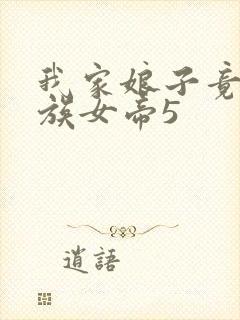 我家娘子竟
族女帝5
逍語